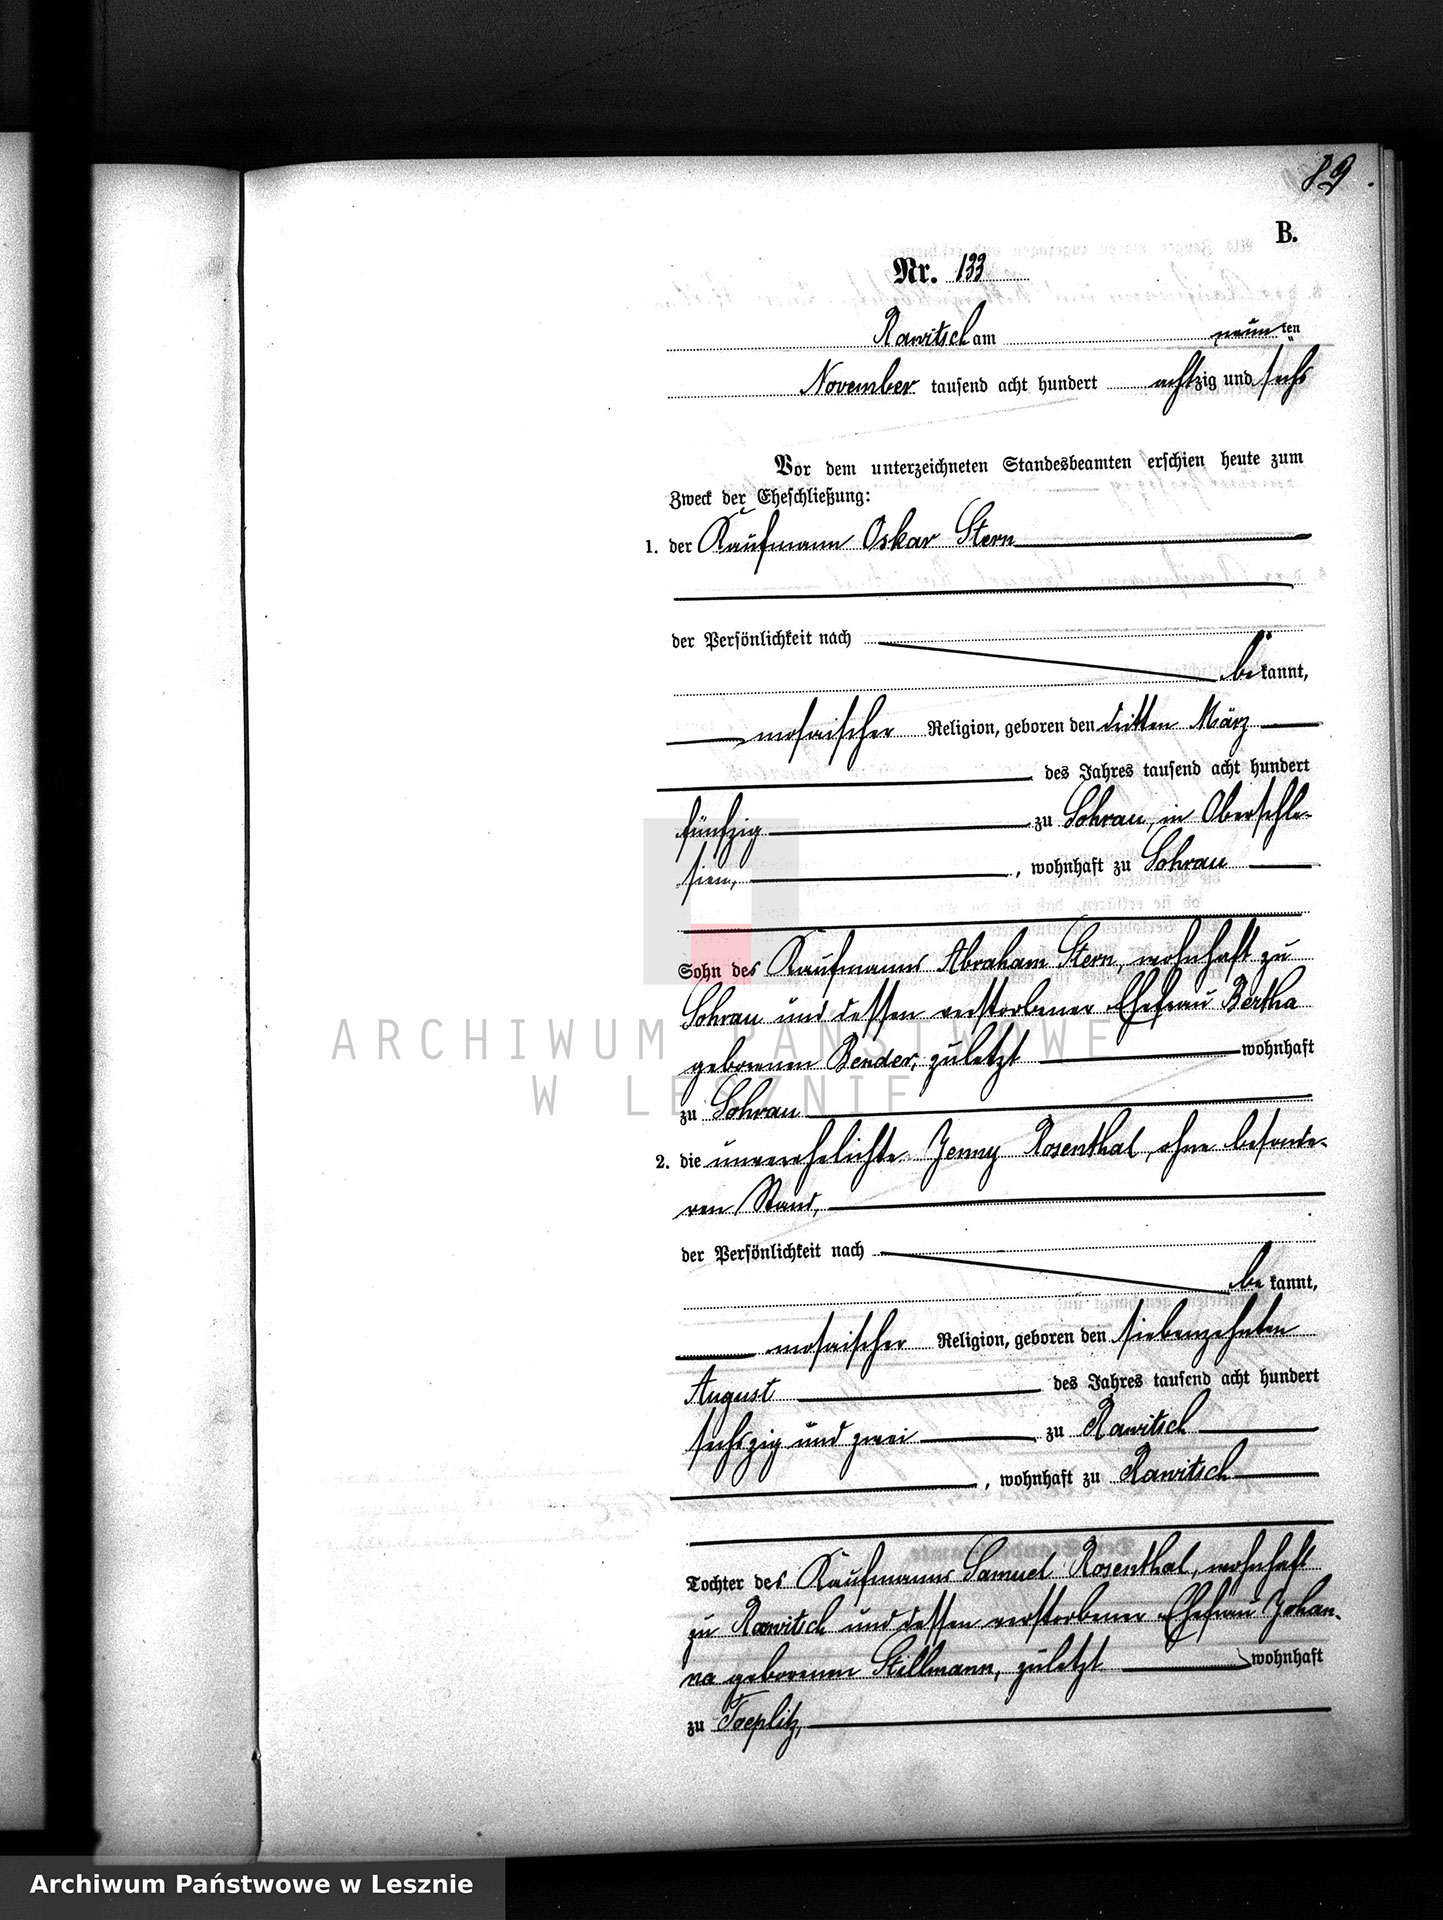 89.
B.
Nr. 133
Rawitsch am neunten
November tausend acht hundert achtzig und sechs
Vor dem unterzeichneten Standesbeamten erschien heute zum
Zweck der Eheschließung:
1. der Kaufmann Oskar Stern
der Persönlichkeit nach
bekannt,
mosaischer Religion, geboren den dritten März
des Jahres tausend acht hundert
fünfzig zu Sohrau, in Oberschle-
sien, , wohnhaft zu Sohrau
Sohn des Kaufmanns Abraham Stern, wohnhaft zu
Sohrau und dessen verstorbener Ehefrau Bertha
geborenen Bender, zuletzt wohnhaft
zu Sohrau
2. die unverehelichte Jenny Rosenthal, ohne besonde-
ren Stand,
der Persönlichkeit nach
bekannt,
mosaischer Religion, geboren den siebenzehnten
August des Jahres tausend acht hundert
sechszig und zwei zu Rawitsch
, wohnhaft zu Rawitsch
Tochter des Kaufmanns Samuel Rosenthal, wohnhaft
zu Rawitsch und dessen verstorbener Ehefrau Johan-
na geborenen Stillmann, zuletzt wohnhaft
zu Toeplitz,
ARCHIWUM PAŃSTWOWE
W LESZNIE
Archiwum Państwowe w Lesznie